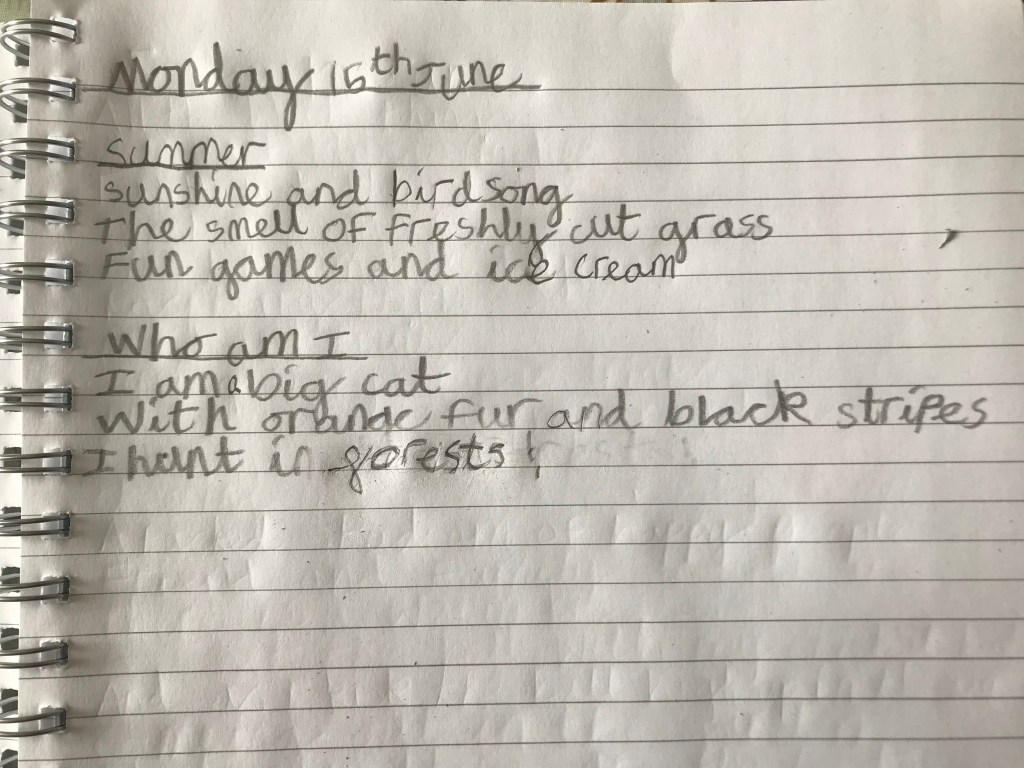 Monday 15th June
Summer
sunshine and birdsong
The smell of freshly cut grass
Fun games and ice cream
Who am I
I am a big cat
With orande fur and black stripes
I hunt in gorests!